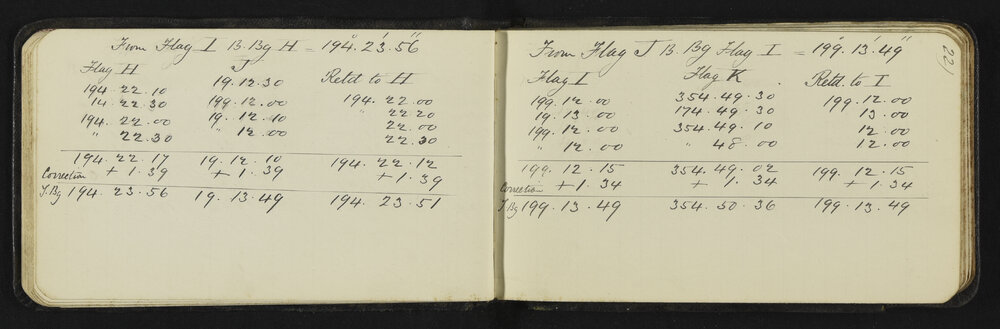 From Flag I B. Bg H = 194° 23' 56"
Flag H J Retd to H
194. 22. 10 19. 12. 30 194. 22. 00
14. 22. 30 199. 12. 00 " 22. 20
194. 22. 00 19. 12. 10 22. 00
" 22. 30 " 12. 00 22. 30
194. 22. 17 19. 12. 10 194. 22. 12
Correction + 1. 39 + 1. 39 + 1. 39
T. Bg 194. 23. 56 19. 13. 49 194. 23. 51
22)
From Flag J B. Bg Flag I = 199° 13' 49"
Flag I Flag K Retd. to I
199. 12. 00 354. 49. 30 199. 12. 00
19. 13. 00 174. 49. 30 13. 00
199. 12. 00 354. 49. 10 12. 00
" 12. 00 " 48. 00 12. 00
199. 12. 15 354. 49. 02 199. 12. 15
Correction + 1. 34 + 1. 34 + 1. 34
T. Bg 199. 13. 49 354. 50. 36 199. 13. 49